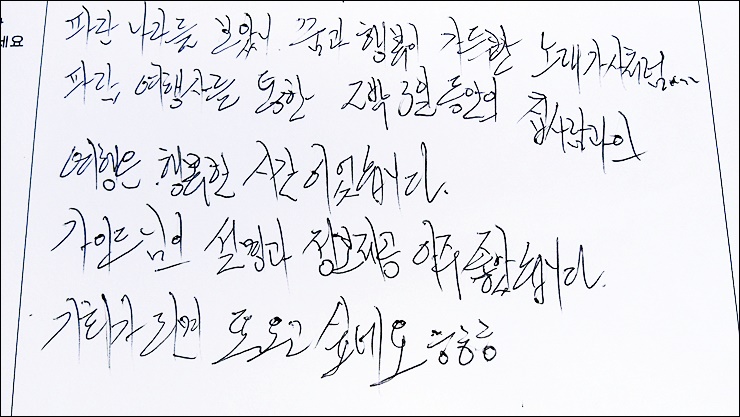 세요
파란 나라를 보았니 꿈과 행복이 가득한 노래가사처럼~~
파람 여행사를 통한 2박 3일 동안의 집사람과의
여행은 행복한 시간이었습니다.
가이드님의 설명과 정보제공 아주 좋았습니다.
기회가 되면 또 오고 싶네요